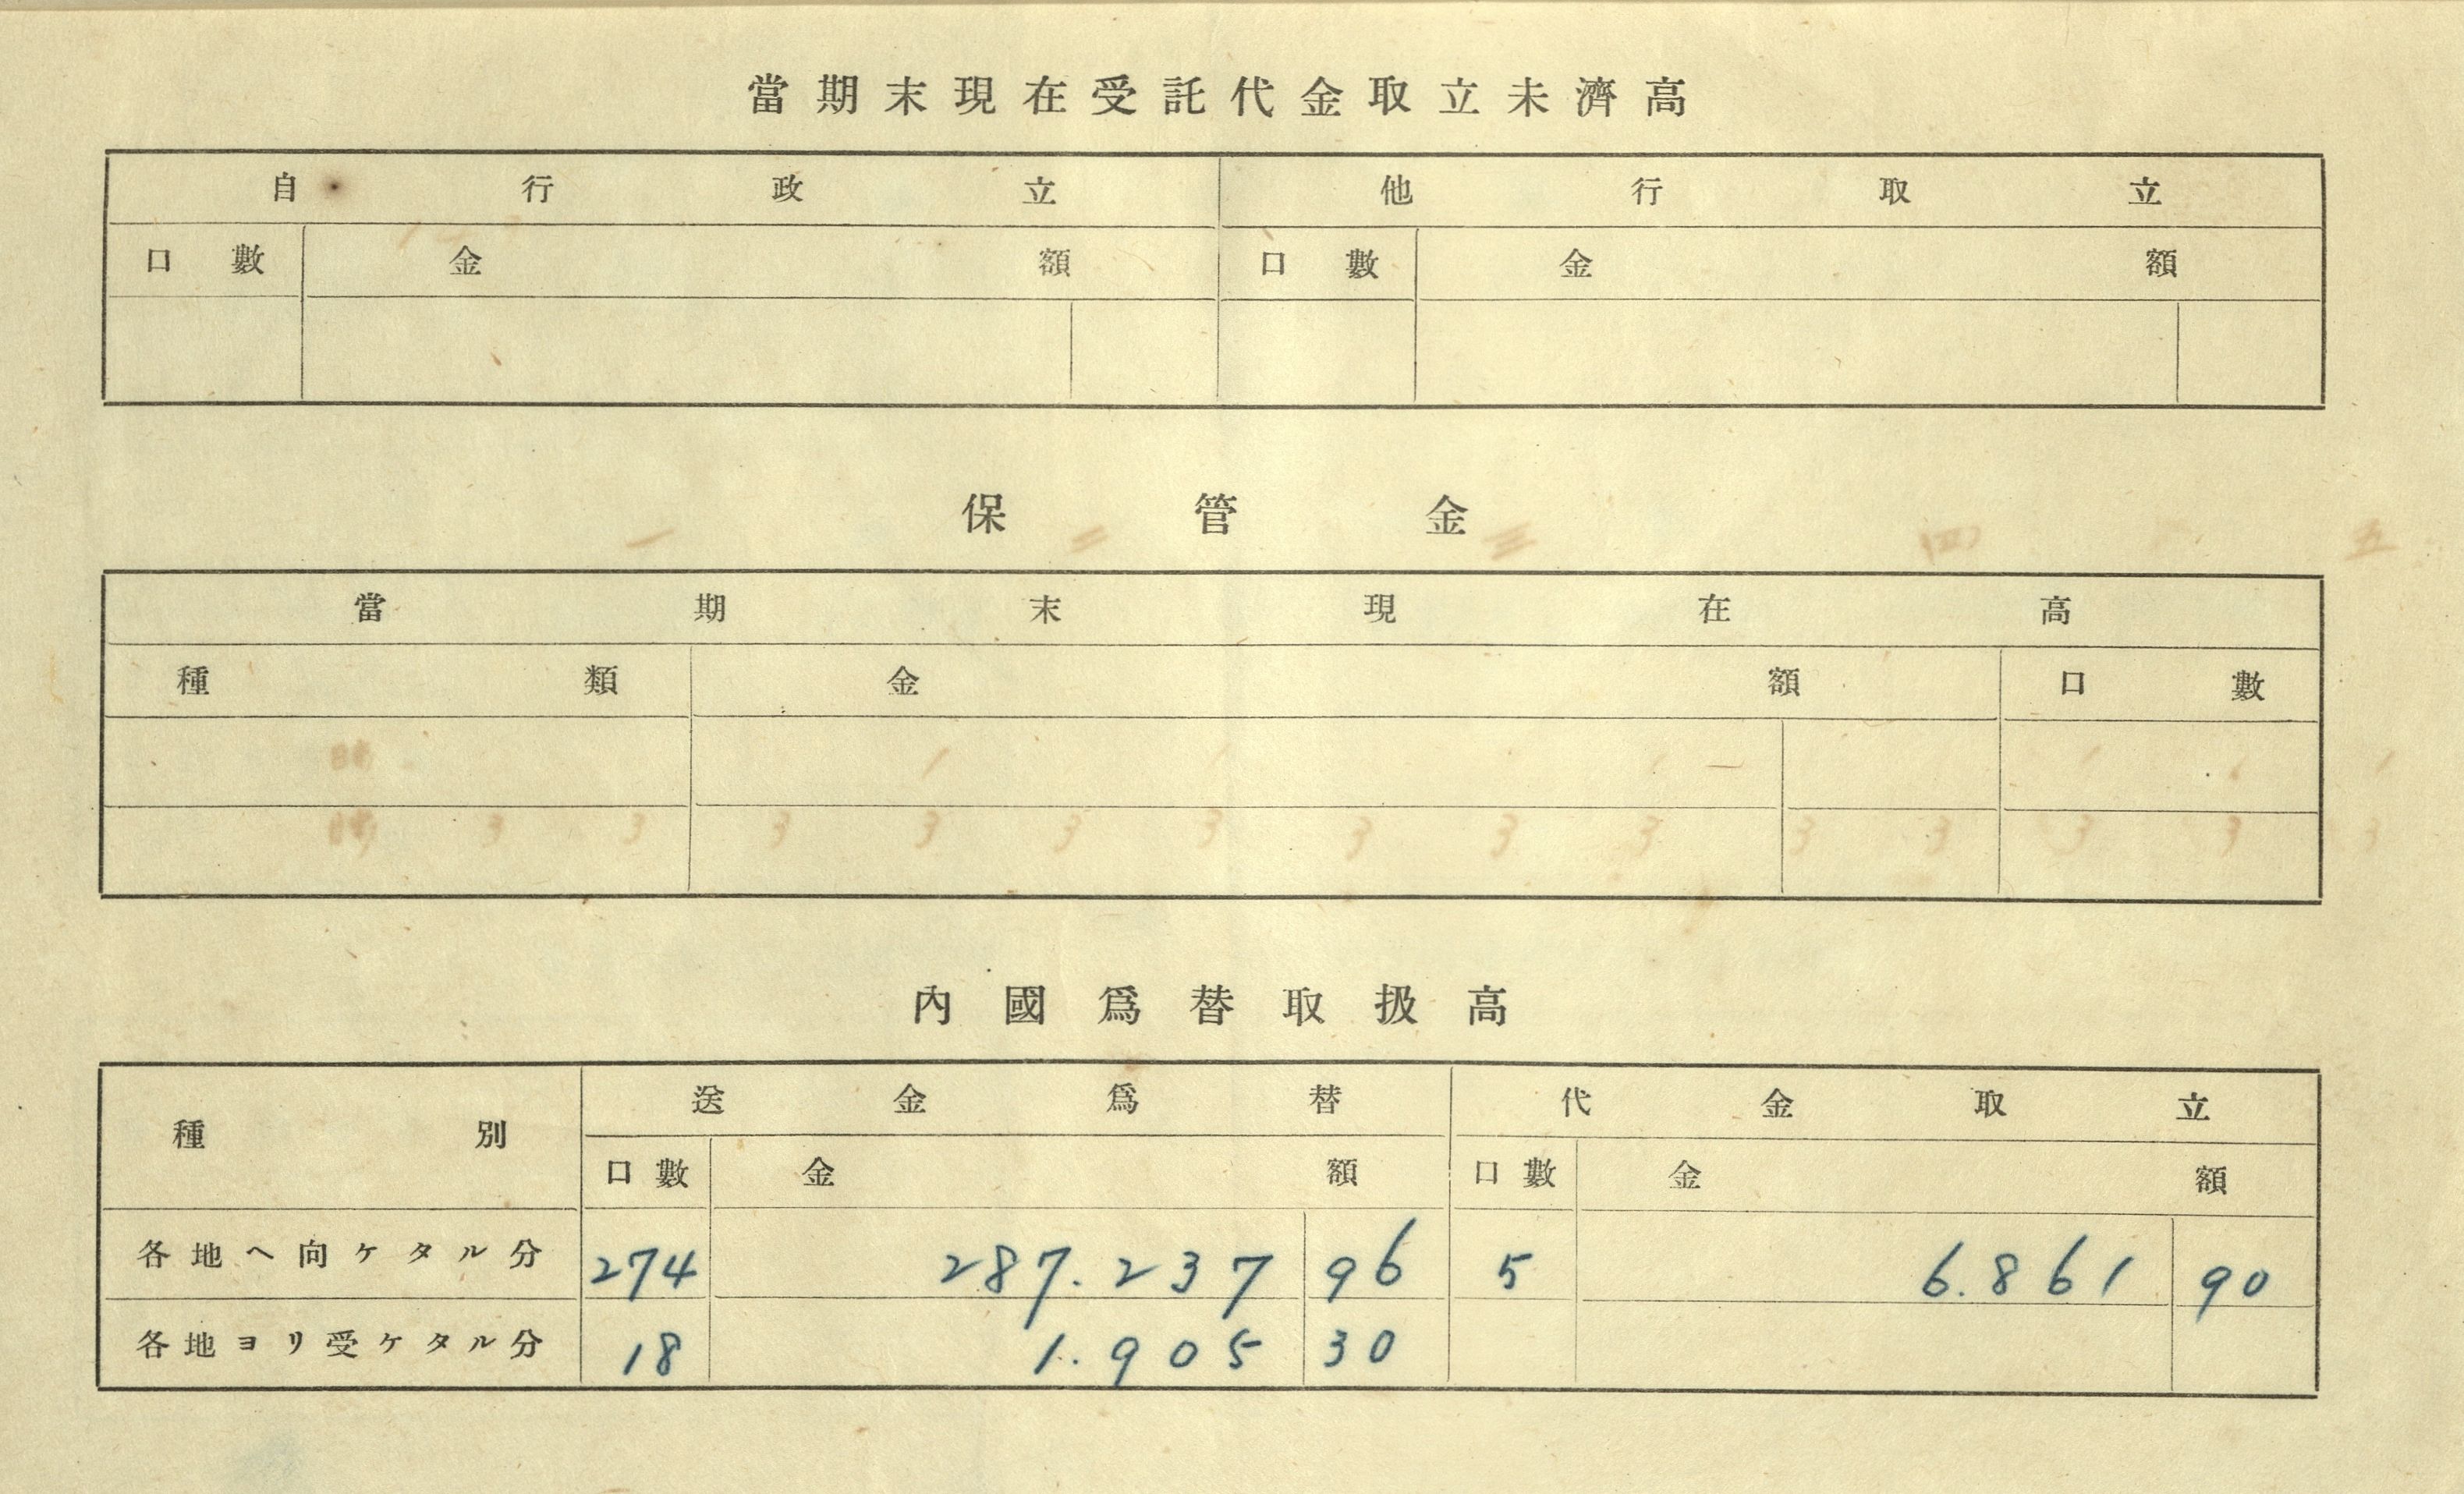 當期末現在受託代金取立未濟高
自行政立 他行取立
口數 金額 口數 金額
保管金
當期末現在高
種類 金額 口數
內國爲替取扱高
種別 送金爲替 代金取立
口數 金額 口數 金額
各地ヘ向ケタル分 274 287.237 96 5 6.861 90
各地ヨリ受ケタル分 18 1.905 30